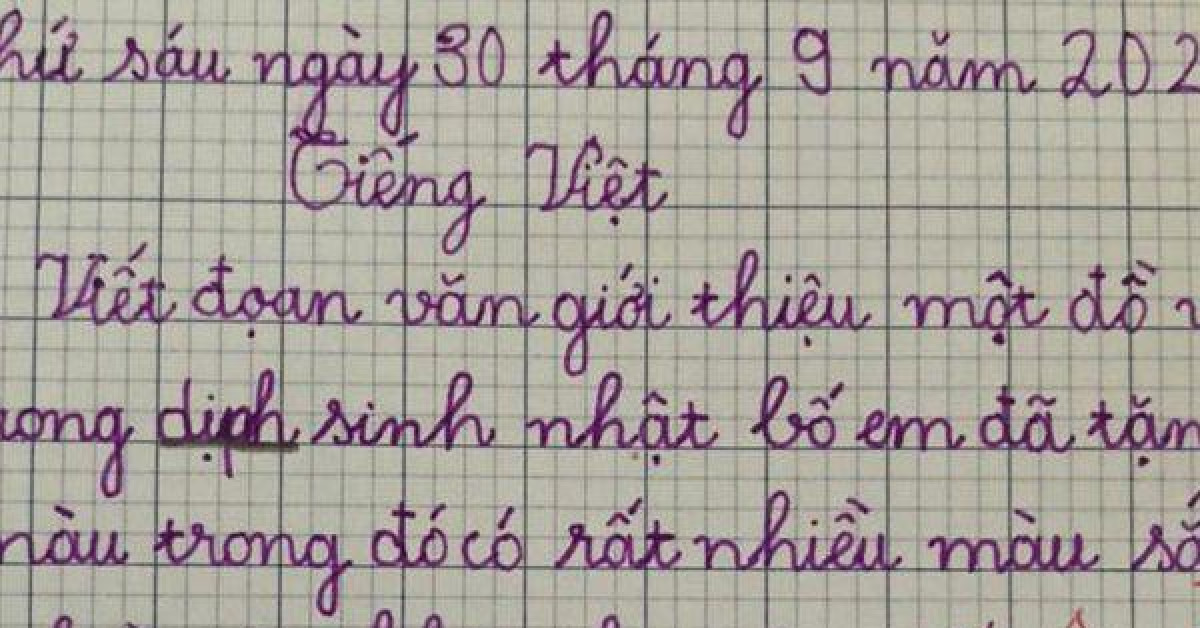 hứ sáu ngày 30 tháng 9 năm 202
Tiếng Việt
Viết đoạn văn giới thiệu một đồ v
ong dịph sinh nhật bố em đã tặn
màu trong đó có rất nhiều màu sắ